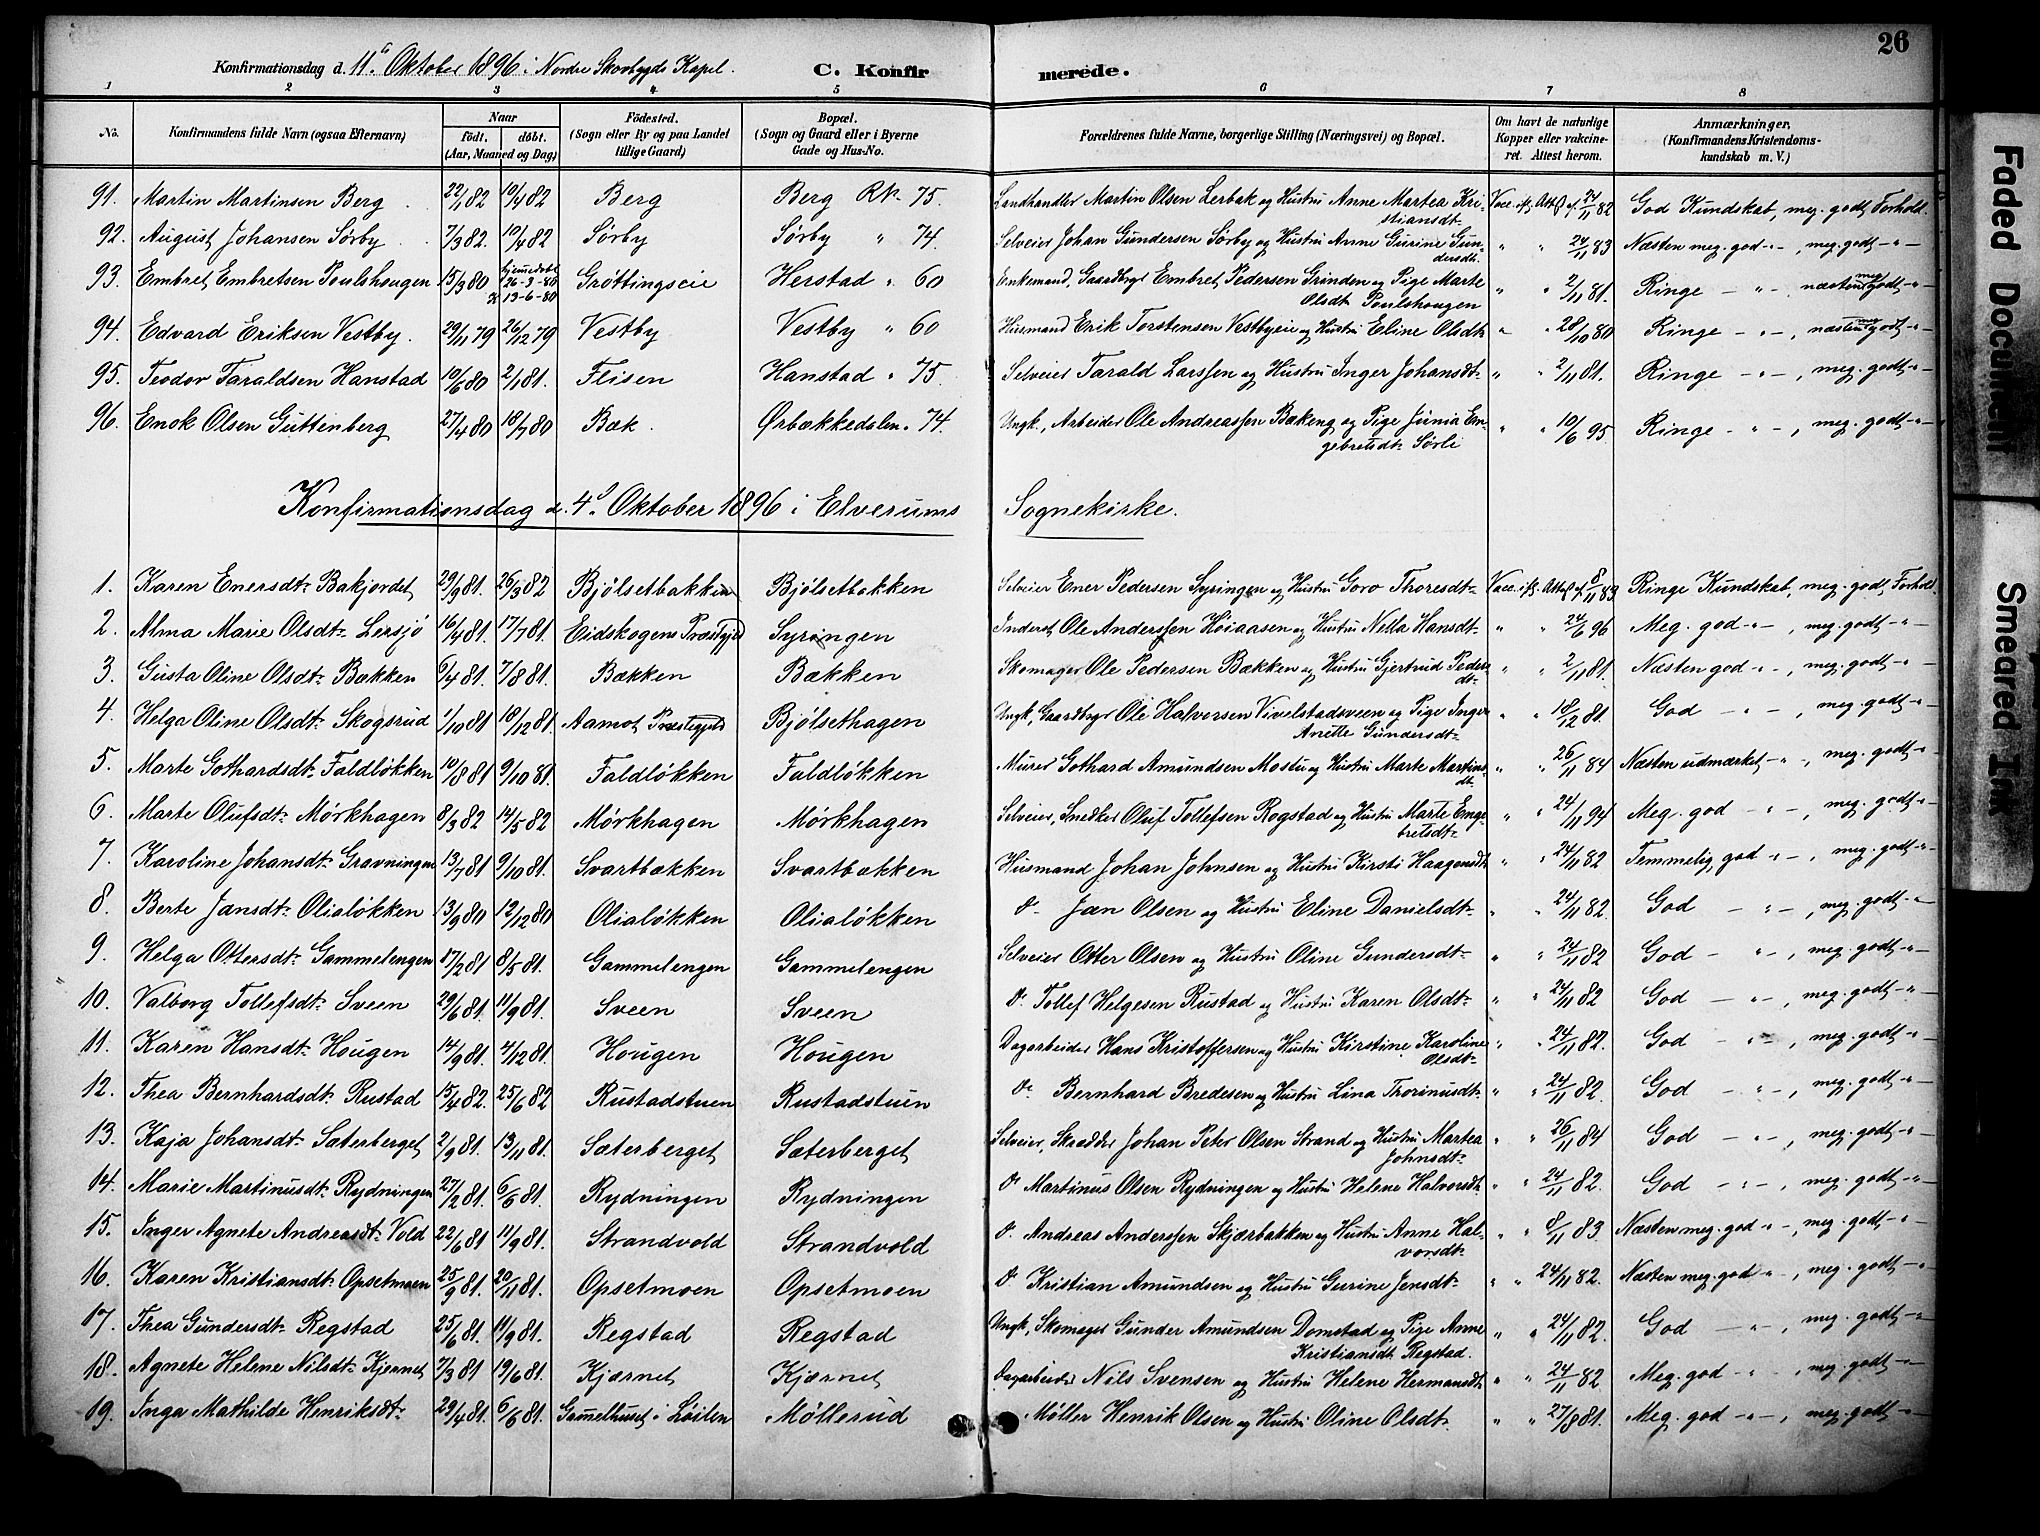 26
Konfirmationsdag d. 11te Oktober 1896 i Nordre Skovbygds Kapel. C. Konfirmerede.
1 2 3 4 5 6 7 8
No. Konfirmandens fulde Navn (ogsaa Efternavn) Naar født. døbt. (Aar, Maaned og Dag) Fødested. (Sogn eller By og paa Landet tillige Gaard) Bopæl. (Sogn og Gaard eller i Byerne Gade og Hus-No. Forældrenes fulde Navne, borgerlige Stilling (Næringsvei) og Bopæl. Om havt de naturlige Kopper eller vakcineret. Attest herom. Anmærkninger. (Konfirmandens Kristendomskundskab m. V.)
91. Martin Martinsen Berg 22/1 82 10/4 82 Berg Berg RN. 75. Landhandler Martin Olsen Lerbak og Hustru Anne Martea Kristiansdt. Vacc. ifl. Att. af 24/11 82 God Kundskab, meg. godt Forhold.
92. August Johansen Sørby 7/3 82. 10/4 82 Sørby Sørby " 74. Selveier Johan Gundersen Sørby og Hustru Anne Gurine Gundersdt. " " 24/11 83 Næsten meg. god -"-, meg. godt -"-
93. Embret Embretsen Poulshougen 15/3 80 hjemmedøbt 26-3-80 13-6-80 Grøttingseie Herstad " 60 Enkemand, Gaardbrgr Embret Pedersen Grinden og Pige Marte Olsdt. Poulshougen " " 2/11 81. Ringe -"-, næsten meg. godt -"-
94. Edvard Eriksen Vestby. 29/11 79 26/12 79 Vestby Vestby " 60 Husmand Erik Torstensen Vestbyeie og Hustru Eline Olsdt. " " 28/10 80 Ringe -"-, næsten meg. godt -"-
95. Teodor Taraldsen Hanstad 10/6 80 2/1 81. Flisen Hanstad " 75. Selveier Tarald Larssen og Hustru Inger Johansdt. " " 2/11 81. Ringe -"-, meg. godt -"-
96. Enok Olsen Guttenberg 27/4 80 18/7 80 Bæk. Ørbækkedalen " 74. Ungk., Arbeider Ole Andreassen Bækeng og Pige Junia Engebretsdt. Sørli " " 10/6 95 Ringe -"-, meg. godt -"-
Konfirmationsdag d. 4de Oktober 1896 i Elverums Sognekirke.
1. Karen Enersdt. Bakjordet 29/9 81. 26/3 82 Bjølsetbakken Bjølsetbakken Selveier Ener Pedersen Syringen og Hustru Goro Thoresdt. Vacc. ifl. Att. af 8/11 83 Ringe Kundskab, meg. godt Forhold.
2. Alma Marie Olsdt. Lersjø 16/4 81. 17/7 81. Eidskogens Præstgjd Syringen Inderst Ole Anderssen Høiaasen og Hustru Nella Hansdt. " " 24/6 96 Meg. god -"-, meg. godt -"-
3. Gusta Oline Olsdt. Bækken 6/4 81. 7/8 81. Bækken Bækken Skomager Ole Pedersen Bækken og Hustru Gjertrud Pedersdt. " " 2/11 81. Næsten god -"-, meg. godt -"-
4. Helga Oline Olsdt. Skogsrud 1/10 81 18/12 81. Aamot Præstegjeld Bjølsethagen Ungk., Gaardbrgr Ole Halvorsen Vivelstadsveen og Pige Inger Anette Gundersdt. " " 18/12 81. God -"-, meg. godt -"-
5. Marte Gothardsdt. Faldløkken 10/8 81 9/10 81. Faldløkken Faldløkken Murer Gothard Amundsen Mostu og Hustru Marte Martinsdt. " " 26/11 84 Næsten udmærket -"-, meg. godt -"-
6. Marte Olufsdt. Mørkhagen 8/3 82 14/5 82 Mørkhagen Mørkhagen Selveier, Snedker Oluf Tollefsen Rogstad og Hustru Marte Engebretsdt. " " 24/11 94 Meg. god -"-, meg. godt -"-
7. Karoline Johansdt. Gravningen 13/7 81 9/10 81. Svartbækken Svartbækken Husmand Johan Johnsen og Hustru Kirsti Haagensdt. " " 24/11 82 Temmelig god -"-, meg. godt -"-
8. Berte Jansdt. Olialøkken 13/9 80 12/12 80 Olialøkken Olialøkken do. Jan Olsen og Hustru Eline Danielsdt. " " 24/11 82. God -"-, meg. godt -"-
9. Helga Ottersdt. Gammelengen 17/2 81 8/5 81. Gammelengen Gammelengen Selveier Otter Olsen og Hustru Oline Gundersdt. " " 24/11 82 God -"-, meg. godt -"-
10. Valborg Tollefsdt. Sveen 29/6 81. 11/9 81. Sveen Sveen do. Tollef Helgesen Rustad og Hustru Karen Olsdt. " " 24/11 82 God -"-, meg. godt -"-
11. Karen Hansdt. Hougen 14/9 81. 4/12 81. Hougen Hougen Dagarbeider Hans Kristoffersen og Hustru Kirstine Karoline Olsdt. " " 24/11 82. God -"-, meg. godt -"-
12. Thea Bernhardsdt. Rustad 15/4 82. 25/6 82 Rustadstuen Rustadstuen do. Bernhard Bredesen og Hustru Lina Thorinusdt. " " 24/11 82. God -"-, meg. godt -"-
13. Kaja Johansdt. Sæterberget 2/9 81. 13/11 81. Sæterberget Sæterberget Selveier, Skrædder Johan Peter Olsen Strand og Hustru Martea Johnsdt. " " 26/11 84 God -"-, meg. godt -"-
14. Marie Martinusdt. Rydningen 27/2 81. 6/6 81. Rydningen Rydningen do. Martinus Olsen Rydningen og Hustru Helene Halvorsdt. " " 24/11 82. God -"-, meg. godt -"-
15. Inger Agnete Andreasdt. Vold 22/6 81 11/9 81. Strandvold Strandvold do. Andreas Anderssen Skjærbakken og Hustru Anne Halvorsdt. " " 8/11 83 Næsten meg. god -"-, meg. godt -"-
16. Karen Kristiansdt. Opsetmoen 25/9 81. 20/11 81. Opsetmoen Opsetmoen do. Kristian Amundsen og Hustru Gurine Jensdt. " " 24/11 82. Næsten meg. god -"-, meg. godt -"-
17. Thea Gundersdt. Regstad 25/6 81. 11/9 81. Regstad Regstad Ungk., Skomager Gunder Amundsen Domstad og Pige Anne Kristiansdt. Regstad. " " 24/11 82. God -"-, meg. godt -"-
18. Agnete Helene Nilsdt. Kjernet 7/3 81 19/6 81. Kjærnet Kjærnet Dagarbeider Nils Svensen og Hustru Helene Hermansdt. " " 24/11 82 Meg. god -"-, meg. godt -"-
19. Inga Mathilde Henriksdt. 29/4 81. 6/6 81. Gamelhuset i Løiten Møllerud Møller Henrik Olsen og Hustru Oline Olsdt. " " 27/8 81. Meg. god -"-, meg. godt -"-
Faded Document
Smeared Ink